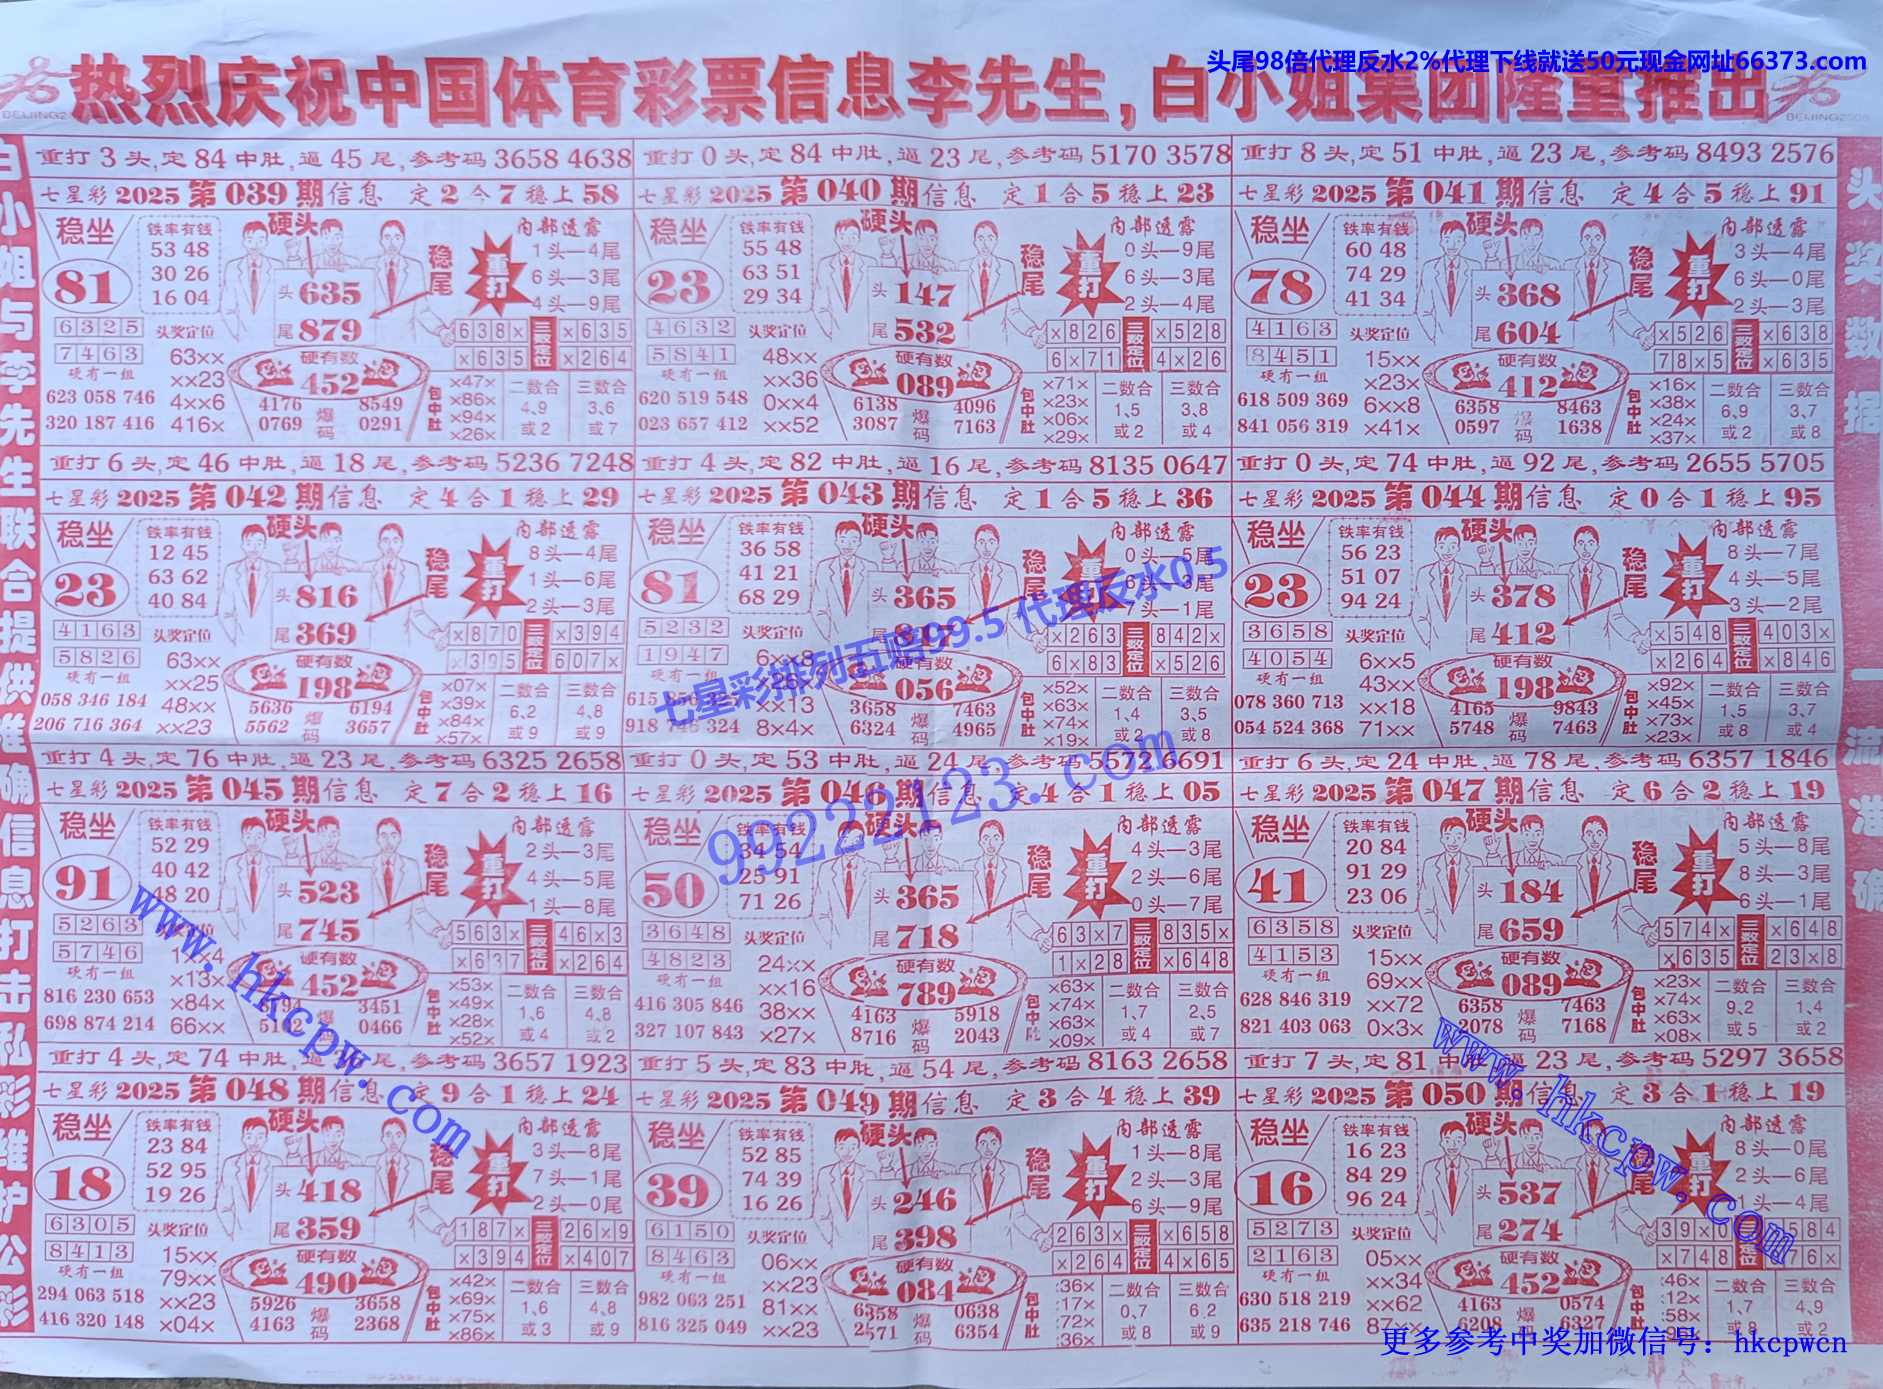 头尾98倍代理反水2%代理下线就送50元现金网址66373.com
热烈庆祝中国体育彩票信息李先生,白小姐集团隆重推出
白小姐与李先生联合提供准确信息打击私彩维护公彩
头奖数据一流准确
重打3头,定84中肚,逼45尾,参考码3658 4638
七星彩2025第039期信息 定2今7稳上58
稳坐 81
铁率有钱
53 48
30 26
16 04
硬头
头635
尾879
稳尾
重打
内部透露
1头—4尾
6头—3尾
4头—9尾
6325
7463
硬有一组
623 058 746
320 187 416
头奖定位
63××
××23
4××6
416×
硬有数
452
4176 爆码 8549
0769 0291
638× 三数定位 ×635
×635 ×264
包中肚
×47×
×86×
×94×
×26×
二数合
4、9
或2
三数合
3、6
或7
重打0头,定84中肚,逼23尾,参考码5170 3578
七星彩2025第040期信息 定1合5稳上23
稳坐 23
铁率有钱
55 48
63 51
29 34
硬头
头147
尾532
稳尾
重打
内部透露
0头—9尾
6头—3尾
2头—4尾
4632
5841
硬有一组
620 519 548
023 657 412
头奖定位
48××
××36
0××4
××52
硬有数
089
6138 爆码 4096
3087 7163
×826 三数定位 ×528
6×71 4×26
包中肚
×71×
×23×
×06×
×29×
二数合
1、5
或2
三数合
3、8
或4
重打8头,定51中肚,逼23尾,参考码8493 2576
七星彩2025第041期信息 定4合5稳上91
稳坐 78
铁率有钱
60 48
74 29
41 34
硬头
头368
尾604
稳尾
重打
内部透露
3头—4尾
6头—0尾
2头—3尾
4163
8451
硬有一组
618 509 369
841 056 319
头奖定位
15××
×23×
6××8
×41×
硬有数
412
6358 爆码 8463
0597 1638
×526 三数定位 ×638
78×5 ×635
包中肚
×16×
×38×
×24×
×37×
二数合
6、9
或2
三数合
3、7
或8
重打6头,定46中肚,逼18尾,参考码5236 7248
七星彩2025第042期信息 定4合1稳上29
稳坐 23
铁率有钱
12 45
63 62
40 84
硬头
头816
尾369
稳尾
重打
内部透露
8头—4尾
1头—6尾
2头—3尾
4163
5826
硬有一组
058 346 184
206 716 364
头奖定位
63××
××25
48××
××23
硬有数
198
5636 爆码 6194
5562 3657
×870 三数定位 ×394
×395 607×
包中肚
×07×
×39×
×84×
×57×
二数合
6、2
或9
三数合
4、8
或9
重打4头,定82中肚,逼16尾,参考码8135 0647
七星彩2025第043期信息 定1合5稳上36
稳坐 81
铁率有钱
36 58
41 21
68 29
硬头
头365
稳尾
内部透露
0头—5尾
6头—3尾
7头—1尾
5232
1947
硬有一组
头奖定位
6××8
××13
8×4×
硬有数
056
3658 爆码 7463
6324 4965
×263 三数定位 842×
6×83 ×526
包中肚
×52×
×63×
×74×
×19×
二数合
1、4
或2
三数合
3、5
或8
重打0头,定74中肚,逼92尾,参考码2655 5705
七星彩2025第044期信息 定0合1稳上95
稳坐 23
铁率有钱
56 23
51 07
94 24
硬头
头378
尾412
稳尾
重打
内部透露
8头—7尾
4头—5尾
3头—2尾
3658
4054
硬有一组
078 360 713
054 524 368
头奖定位
6××5
43××
××18
71××
硬有数
198
4165 爆码 9843
5748 7463
×548 三数定位 403×
×264 ×846
包中肚
×92×
×45×
×73×
×23×
二数合
1、5
或8
三数合
3、7
或4
重打4头,定76中肚,逼23尾,参考码6325 2658
七星彩2025第045期信息 定7合2稳上16
稳坐 91
铁率有钱
52 29
40 42
48 20
硬头
头523
尾745
稳尾
重打
内部透露
2头—3尾
4头—5尾
1头—8尾
5263
5746
硬有一组
816 230 653
698 874 214
×13×
×84×
66××
硬有数
452
爆码 3451
0466
563× 三数定位 46×3
×637 ×264
包中肚
×53×
×49×
×28×
×52×
二数合
1、6
或4
三数合
4、8
或2
重打0头,定53中肚,逼24尾,参考码5572 6691
七星彩2025第046期信息 定4合1稳上05
稳坐 50
铁率有钱
34 54
25 91
71 26
硬头
头365
尾718
稳尾
重打
内部透露
4头—3尾
2头—6尾
0头—7尾
3648
4823
硬有一组
416 305 846
327 107 843
头奖定位
24××
××16
38××
×27×
硬有数
789
4163 爆码 5918
8716 2043
63×7 三数定位 835×
1×28 ×648
包中肚
×63×
×74×
×63×
×09×
二数合
1、7
或4
三数合
2、5
或7
重打6头,定24中肚,逼78尾,参考码6357 1846
七星彩2025第047期信息 定6合2稳上19
稳坐 41
铁率有钱
20 84
91 29
23 06
硬头
头184
尾659
稳尾
重打
内部透露
5头—8尾
8头—3尾
6头—1尾
6358
4153
硬有一组
628 846 319
821 403 063
头奖定位
15××
69××
××72
0×3×
硬有数
089
6358 爆码 7463
2078 7168
574× 三数定位 ×648
×635 23×8
包中肚
×23×
×74×
×63×
×08×
二数合
9、2
或5
三数合
1、4
或2
重打4头,定74中肚,逼 尾,参考码3657 1923
七星彩2025第048期信息 定9合1稳上24
稳坐 18
铁率有钱
23 84
52 95
19 26
硬头
头418
尾359
稳尾
重打
内部透露
3头—8尾
7头—1尾
2头—0尾
6305
8413
硬有一组
294 063 518
416 320 148
头奖定位
15××
79××
××23
×04×
硬有数
490
5926 爆码 3658
4163 2368
187× 三数定位 26×9
×394 ×407
包中肚
×42×
×69×
×75×
×86×
二数合
1、6
或3
三数合
4、8
或9
重打5头,定83中肚,逼54尾,参考码8163 2658
七星彩2025第049期信息 定3合4稳上39
稳坐 39
铁率有钱
52 85
74 39
16 26
硬头
头246
尾398
稳尾
重打
内部透露
1头—8尾
2头—3尾
6头—9尾
6150
8463
硬有一组
982 063 251
816 325 049
头奖定位
06××
××23
81××
××23
硬有数
084
6358 爆码 0638
2571 6354
263× 三数定位 ×658
×264 4×65
包中肚
36×
17×
72×
36×
二数合
0、7
或8
三数合
6、2
或9
重打7头,定81中肚,逼23尾,参考码5297 3658
七星彩2025第050期信息 定3合1稳上19
稳坐 16
铁率有钱
16 23
84 29
96 24
硬头
头537
尾274
重打
内部透露
8头—0尾
2头—6尾
1头—4尾
5273
2163
硬有一组
630 518 219
635 218 746
头奖定位
05××
××34
××62
87××
硬有数
452
4163 爆码 0574
6208 6327
39×0 584
×748 76×
包中肚
46×
12×
58×
二数合
1、7
三数合
4、9
或2
七星彩排列五赔99.5 代理反水0.5
99222123.com
www.hkcpw.com
www.hkcpw.com
更多参考中奖加微信号：hkcpwcn